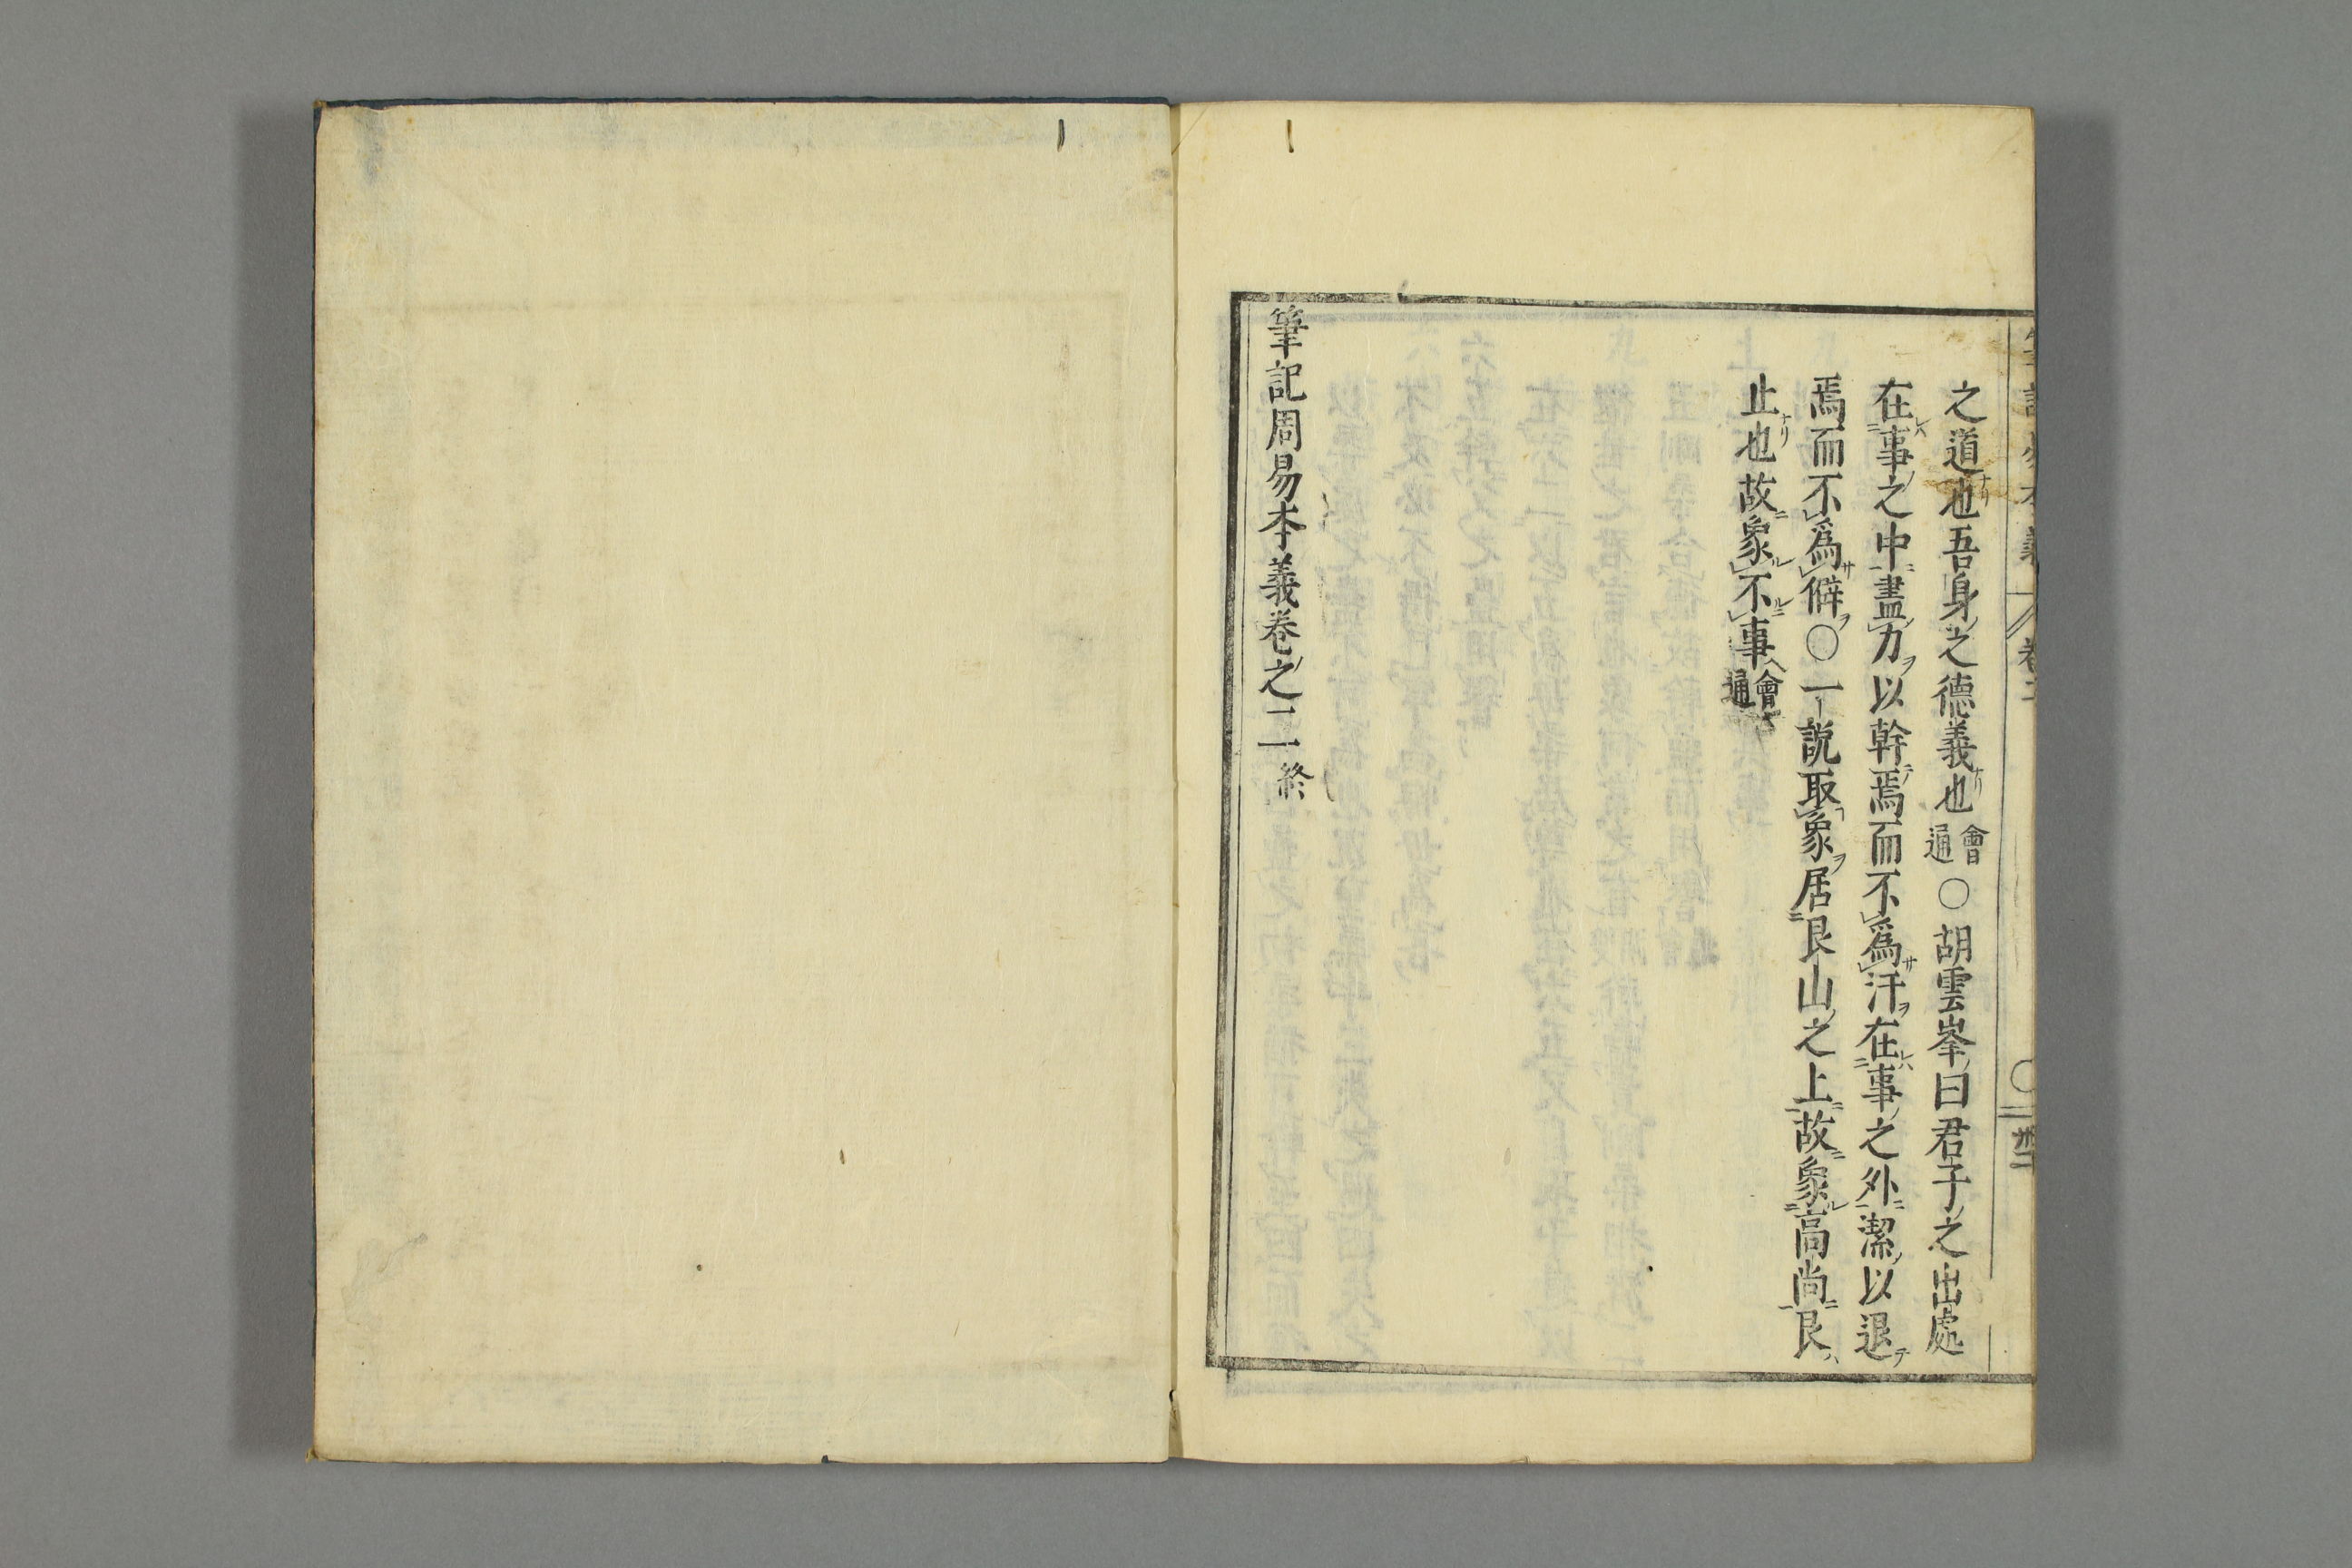 之道也吾身之德義也會通○胡雲峯曰君子之出處
在事之中盡力以幹焉而不爲汙在事之外潔以退
焉而不爲僻○一説取象居艮山之上故象高尚艮
止也故象不事會通
筆記周易本義卷之二終